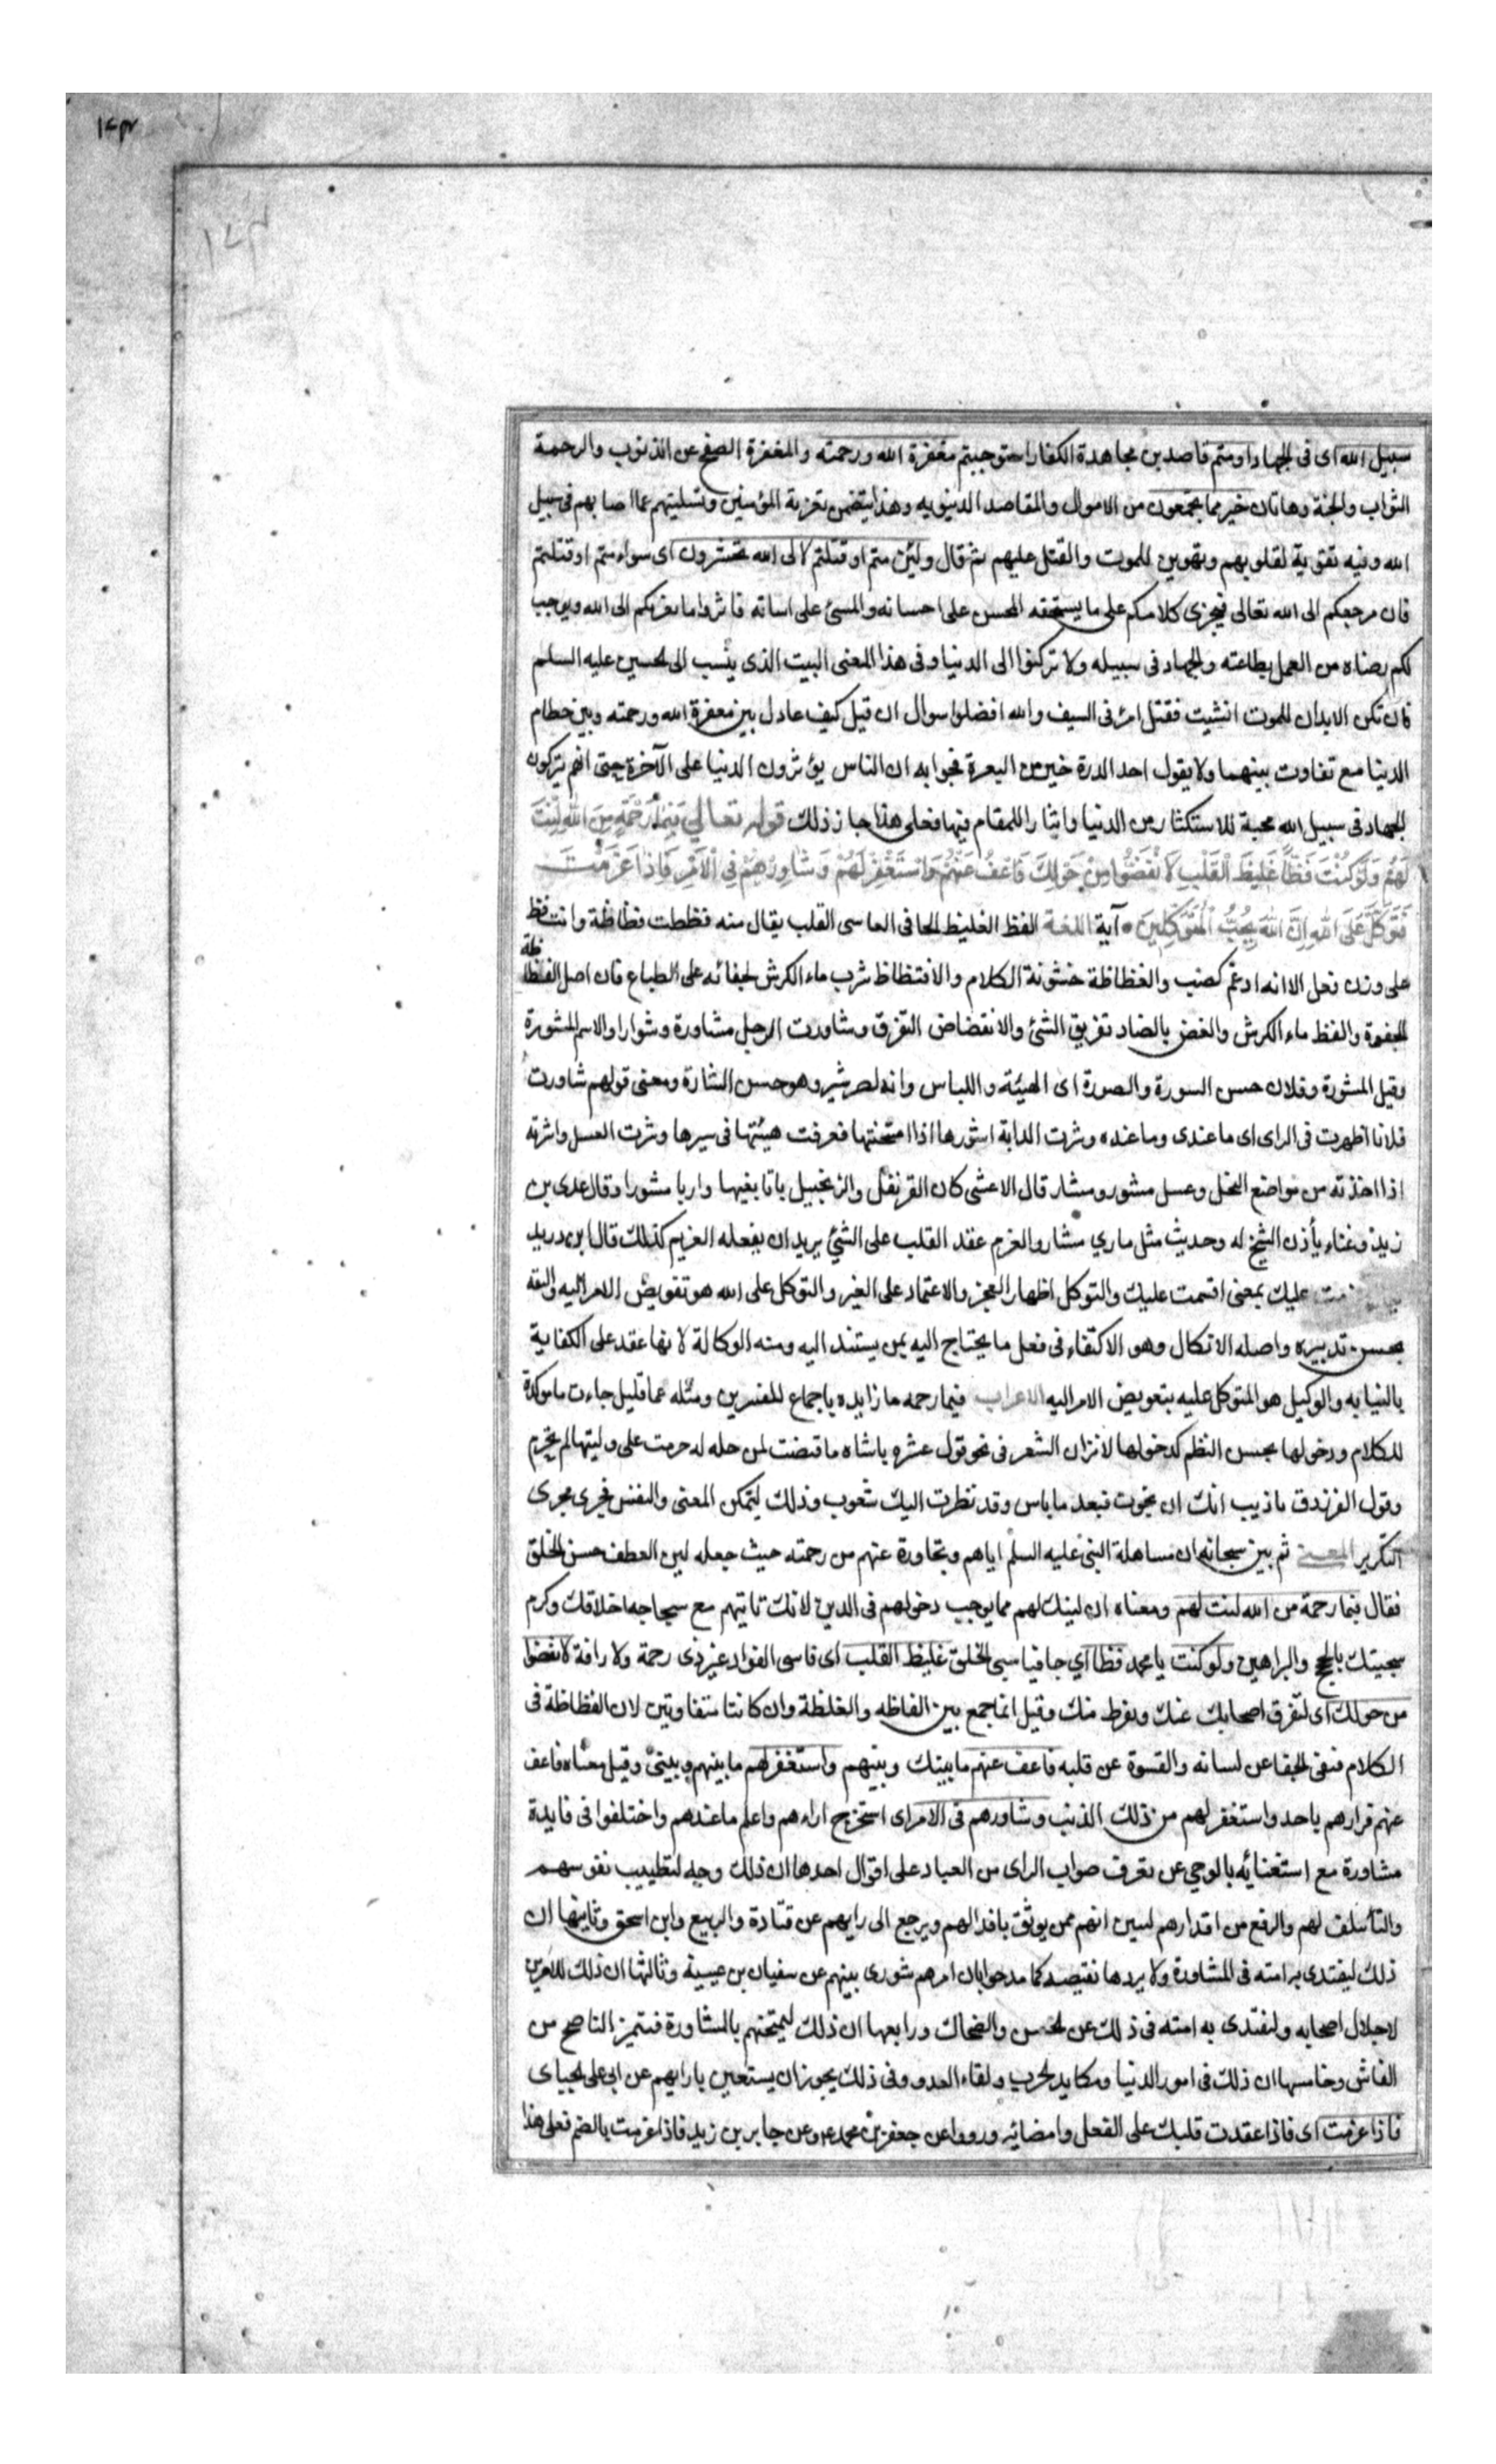 ١٢٣
١٢٣
سبيل الله اى فى الجهاد او متم قاصدين مجاهدة الكفار استوجبتم مغفرة الله ورحمته والمغفرة الصفح عن الذنوب والرحمة
الثواب والجنة وهاتان خير مما يجمعون من الاموال والمقاصد الدنيويه وهذا يتضمن تعزية المؤمنين وتسليتهم عما اصابهم فى سبيل
الله وفيه تقوية لقلوبهم وتهوين للموت والقتل عليهم ثم قال ولئن متم او قتلتم لالى الله تحشرون اى سواء متم او قتلتم
فان مرجعكم الى الله تعالى فيجزى كلا منكم على ما يستحقه المحسن على احسانه والمسئ على اساته فاثروا ما يقربكم الى الله ويوجب
لكم رضاه من العمل بطاعته والجهاد فى سبيله ولا تركنوا الى الدنيا وفى هذا المعنى البيت الذى ينسب الى الحسين عليه السلم
فان تكن الابدان للموت انشيت فقتل امرئ فى السيف والله افضل سوال ان قيل كيف عادل بين مغفرة الله ورحمته وبين حطام
الدنيا مع تفاوت بينهما ولا يقول احد الدرة خير من البعرة فجوابه ان الناس يؤثرون الدنيا على الآخرة حتى انهم يتركون
الجهاد فى سبيل الله محبة للاستكثار من الدنيا وايثارا للمقام فيها فعلى هذا جاز ذلك قوله تعالى فَبِمَا رَحْمَةٍ مِنَ اللهِ لِنْتَ
لَهُمْ وَلَوْ كُنْتَ فَظًّا غَلِيظَ الْقَلْبِ لَانْفَضُّوا مِنْ حَوْلِكَ فَاعْفُ عَنْهُمْ وَاسْتَغْفِرْ لَهُمْ وَشَاوِرْهُمْ فِي الْاَمْرِ فَاِذَا عَزَمْتَ
فَتَوَكَّلْ عَلَى اللهِ اِنَّ اللهَ يُحِبُّ الْمُتَوَكِّلِينَ آية اللغة الفظ الغليظ الجافى القاسى القلب يقال منه فظظت فظاظة وانت فظ
على وزن فعل الا انه ادغم كضب والفظاظة خشونة الكلام والافتظاظ شرب ماء الكرش لجفائه على الطباع فان اصل الفظاظة
الجفوة والفظ ماء الكرش والفض بالضاد تفريق الشئ والانفضاض التفرق وشاورت الرجل مشاورة وشوارا والاسم المشورة
وقيل المشورة وفلان حسن السورة والصورة اى الهيئة واللباس وانه لصير شير وهو حسن الشارة ومعنى قولهم شاورت
فلانا اظهرت فى الراى اى ما عندى وما عنده وشرت الدابة اشورها اذا امتحنتها فعرفت هيئتها فى سيرها وشرت العسل واشرته
اذا اخذته من مواضع النحل وعسل مشور ومشار قال الاعشى كان القرنفل والزنجبيل باتا بفيها واريا مشورا وقال عدى بن
زيد وغناء يأذن الشيخ له وحديث مثل ماري مشار والعزم عقد القلب على الشئ يريد ان يفعله العزيم كذلك قال ابن دريد
عليك بمعنى اقسمت عليك والتوكل اظهار العجز والاعتماد على الغير والتوكل على الله هو تفويض الامر اليه والثقة
بحسن تدبيره واصله الاتكال وهو الاكتفاء فى فعل ما يحتاج اليه بمن يستند اليه ومنه الوكالة لانها عقد على الكفاية
بالنيابه والوكيل هو المتوكل عليه بتعويض الامر اليه الاعراب فبما رحمه ما زايده باجماع المفسرين ومثله عما قليل جاءت ما موكدة
للكلام ودخولها بحسن النظم كدخولها لاتزان الشعر فى نحو قول عنتره ياشاه ما قنصت لمن حله له حرمت على وليتها لم تحرم
وقول الفرزدق ما ذيب انك ان نجوت فبعد ما ياس وقد نظرت اليك شعوب وذلك ليتمكن المعنى والنفس فجرى مجرى
التكرير المعنى ثم بين سبحانه ان مساهلة النبى عليه السلم اياهم وتجاوزة عنهم من رحمته حيث جعله لين العطف حسن الخلق
فقال فبما رحمة من الله لنت لهم ومعناه ان لينك لهم مما يوجب دخولهم فى الدين لانك تاتيهم مع سجاحه اخلاقك وكرم
سجيتك بالحجج والبراهين ولو كنت يا محمد فظا اي جافيا سيى الخلق غليظ القلب اى قاسى الفواد غير ذى رحمة ولا رافة لانفضوا
من حولك اى لتفرق اصحابك عنك ونفر منك وقيل انما جمع بين الفاظه والغلظة وان كانتا متفاوتين لان الفظاظة فى
الكلام فنفى الجفا عن لسانه والقسوة عن قلبه فاعف عنهم ما بينك وبينهم واستغفر لهم ما بينهم وبينى وقيل معناه فاعف
عنهم فرارهم باحد واستغفر لهم من ذلك الذنب وشاورهم فى الامر اى استخرج اراءهم واعلم ما عندهم واختلفوا فى فايدة
مشاورة مع استغنائه بالوحي عن تعرف صواب الراى من العباد على اقوال احدها ان ذلك وجه لتطييب نفوسهم
والتأسلف لهم والرفع من اقدارهم لسين انهم ممن يوثق باقوالهم ويرجع الى رايهم عن قتادة والربيع وابن اسحق وثانيها ان
ذلك ليقتدى به امته فى المشاورة ولا يردها نقيصه كما مدحوا بان امرهم شورى بينهم عن سفيان بن عيينة وثالثها ان ذلك للامرين
لاجلال اصحابه ولتقتدى به امته فى ذلك عن الحسن والضحاك ورابعها ان ذلك ليمتحنهم بالمشاورة فيتميز الناصح من
الغاش وخامسها ان ذلك فى امور الدنيا ومكايد الحرب ولقاء العدو وفى ذلك يجوز ان يستعين بارايهم عن ابى على الجبائى
فاذا عزمت اى فاذا عقدت قلبك على الفعل وامضائه ورووا عن جعفر بن محمد ع وعن جابر بن زيد فاذا عزمت بالضم فعلى هذا